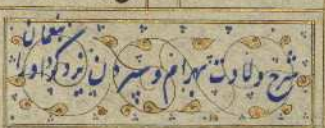 شرح ولادت بهرام و سپردن یزدگرد او را
بنعمان